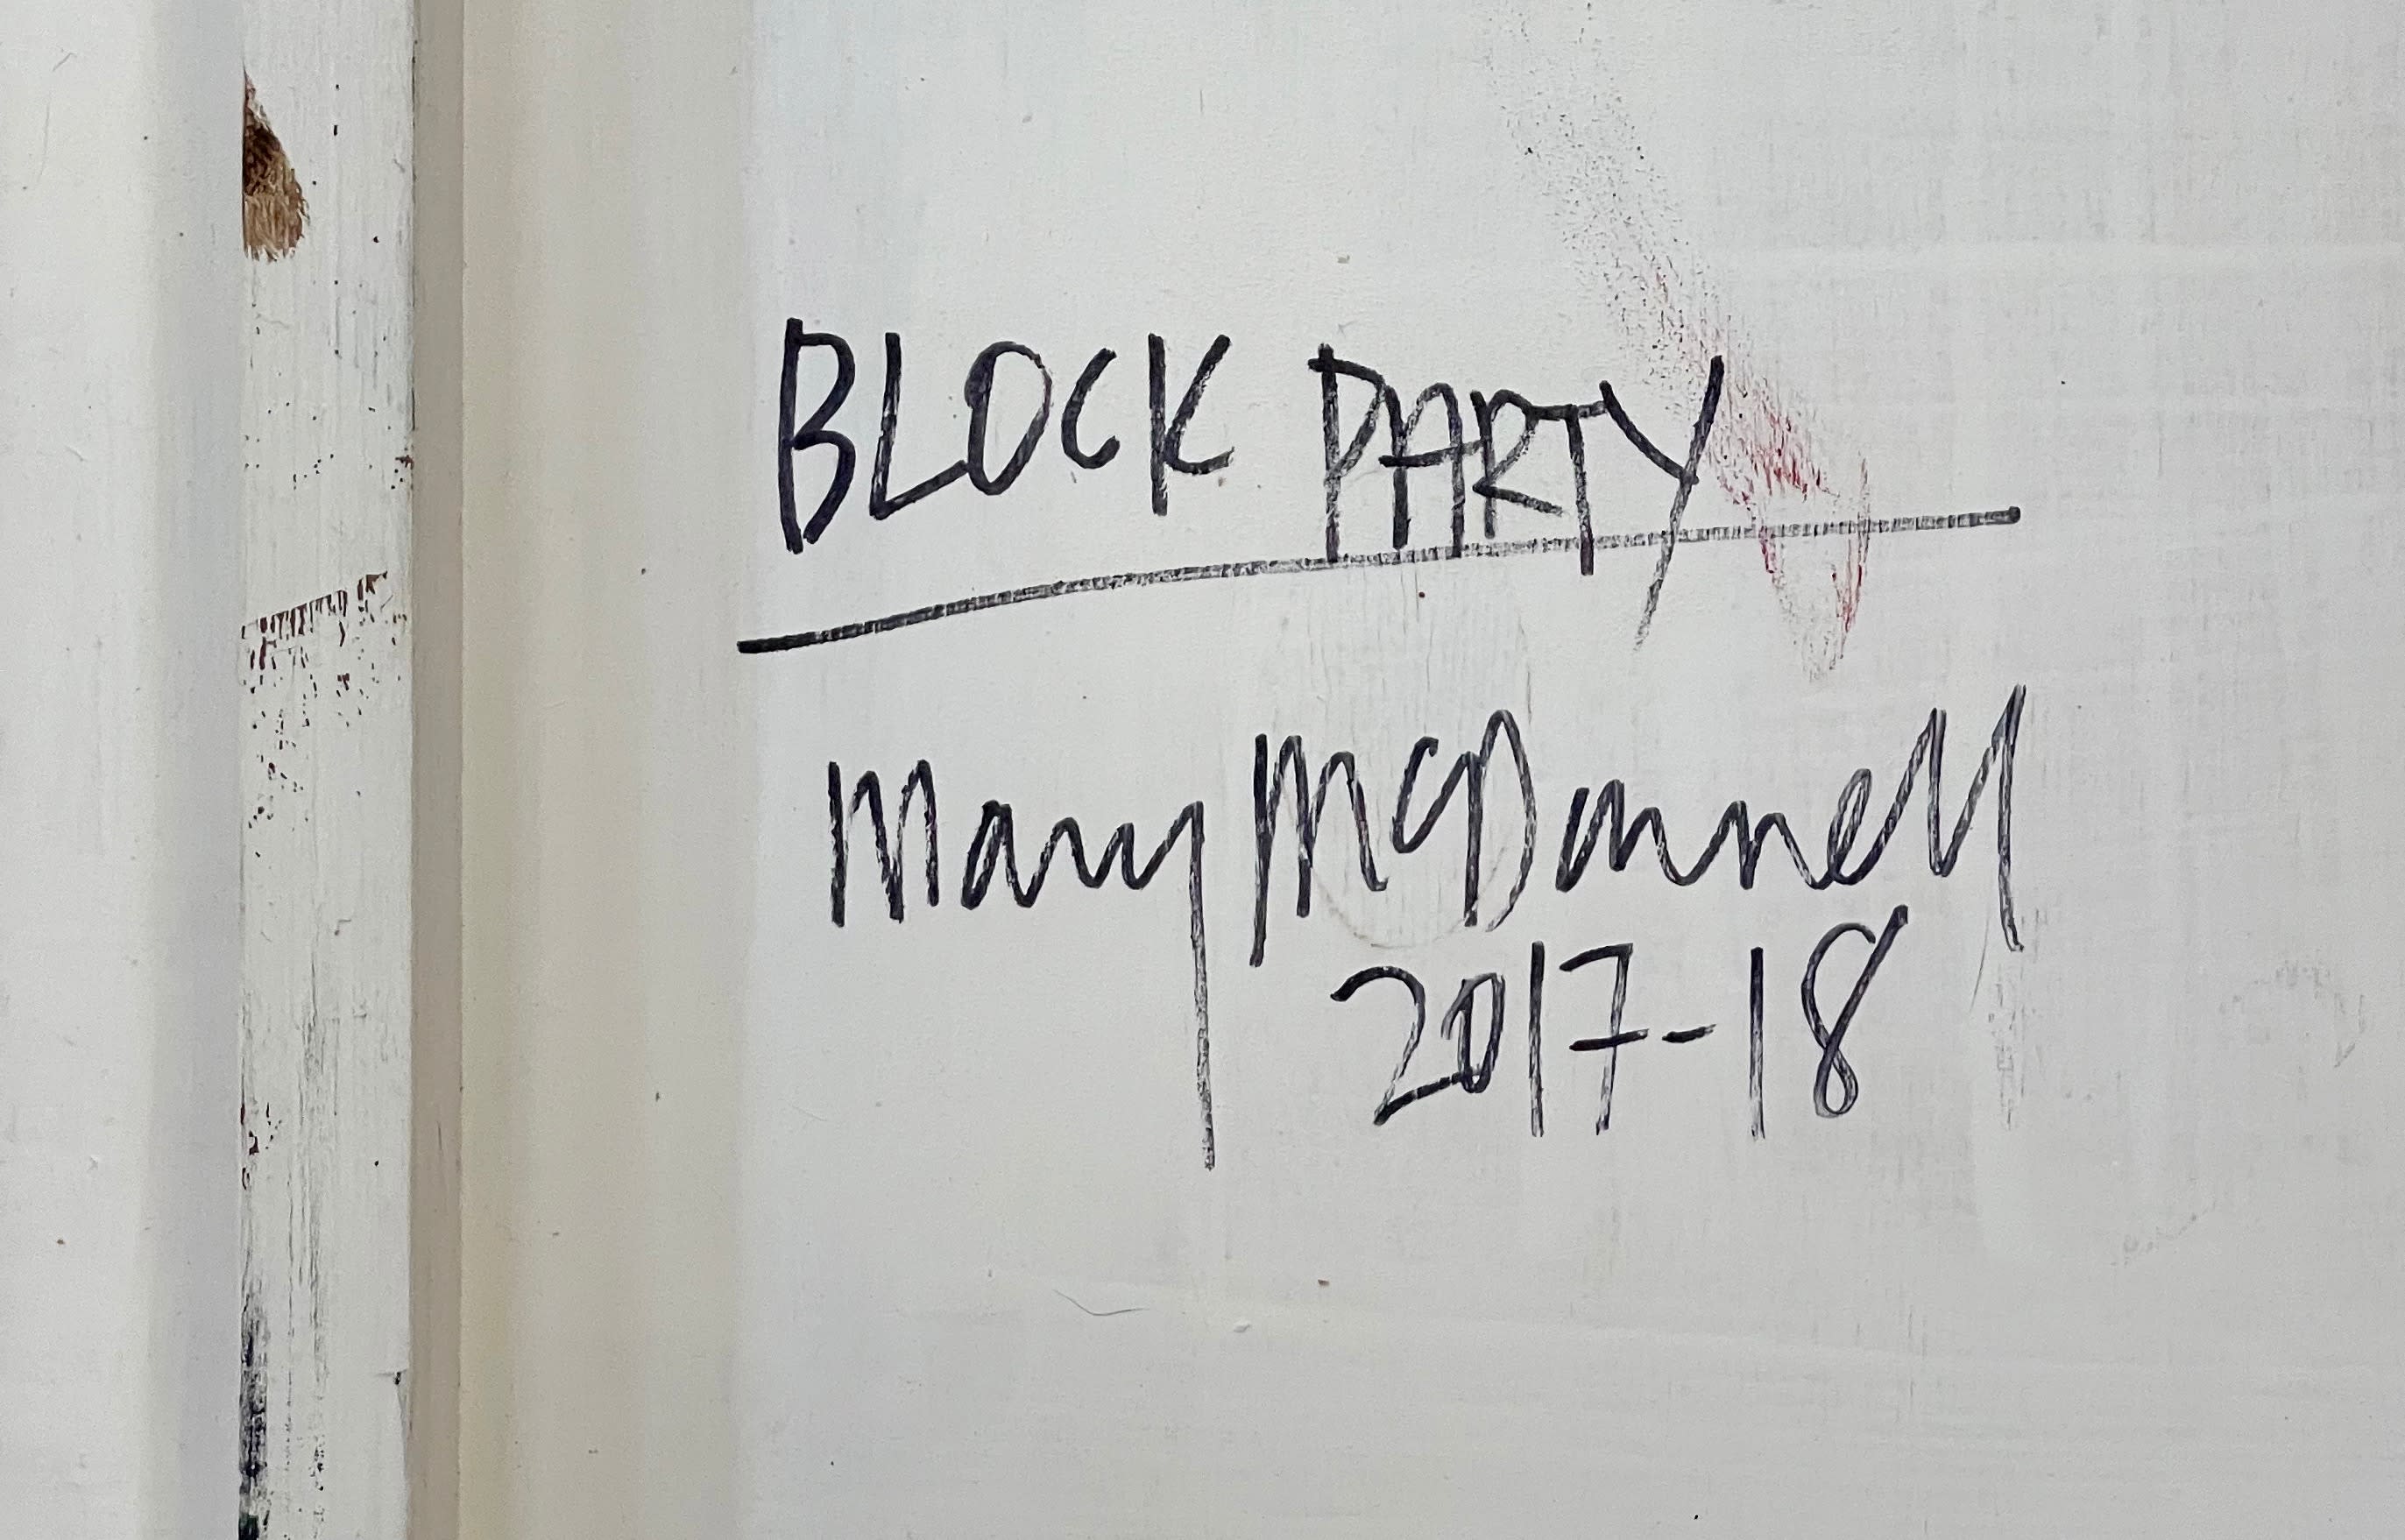 BLOCK PARTY
Mary McDonnell
2017-18